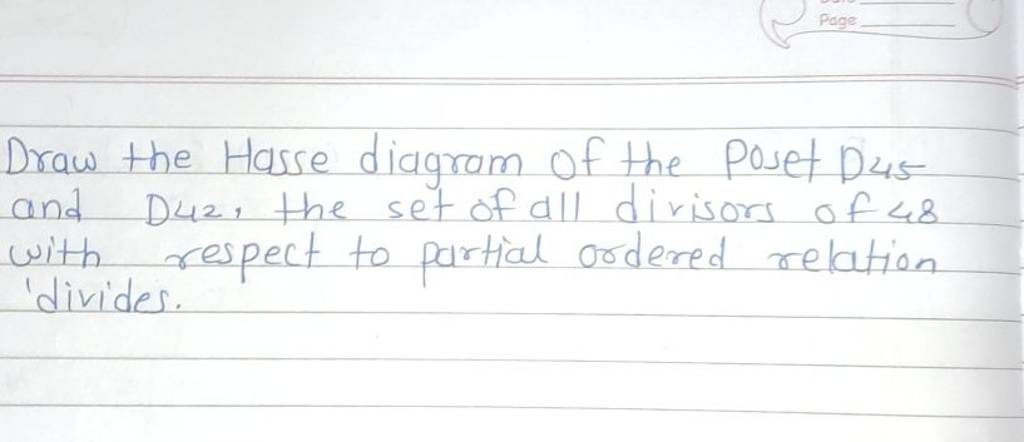 Page
Draw the Hasse diagram of the Poset D45
and D42, the set of all divisors of 48
with respect to partial ordered relation
'divides.